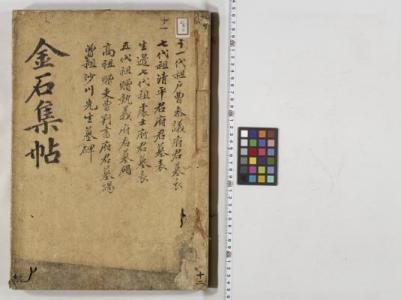 金石集帖
十一
十一代祖戶曹參議府君墓表
七代祖清平君府君墓表
生邊七代祖處士府君墓表
五代祖贈執義府君墓碣
高祖贈吏曹判書府君墓碣
曾祖沙川先生墓碑